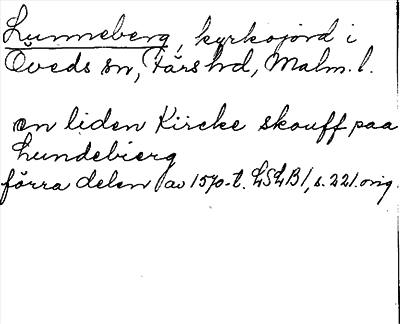 Lunneberg, kyrkojord i
Öveds sn, Färs hd, Malm. l.
en liden Kircke skouff paa
Lundebierg
förra delen av 1570-t. LSLB1, s. 221 orig.